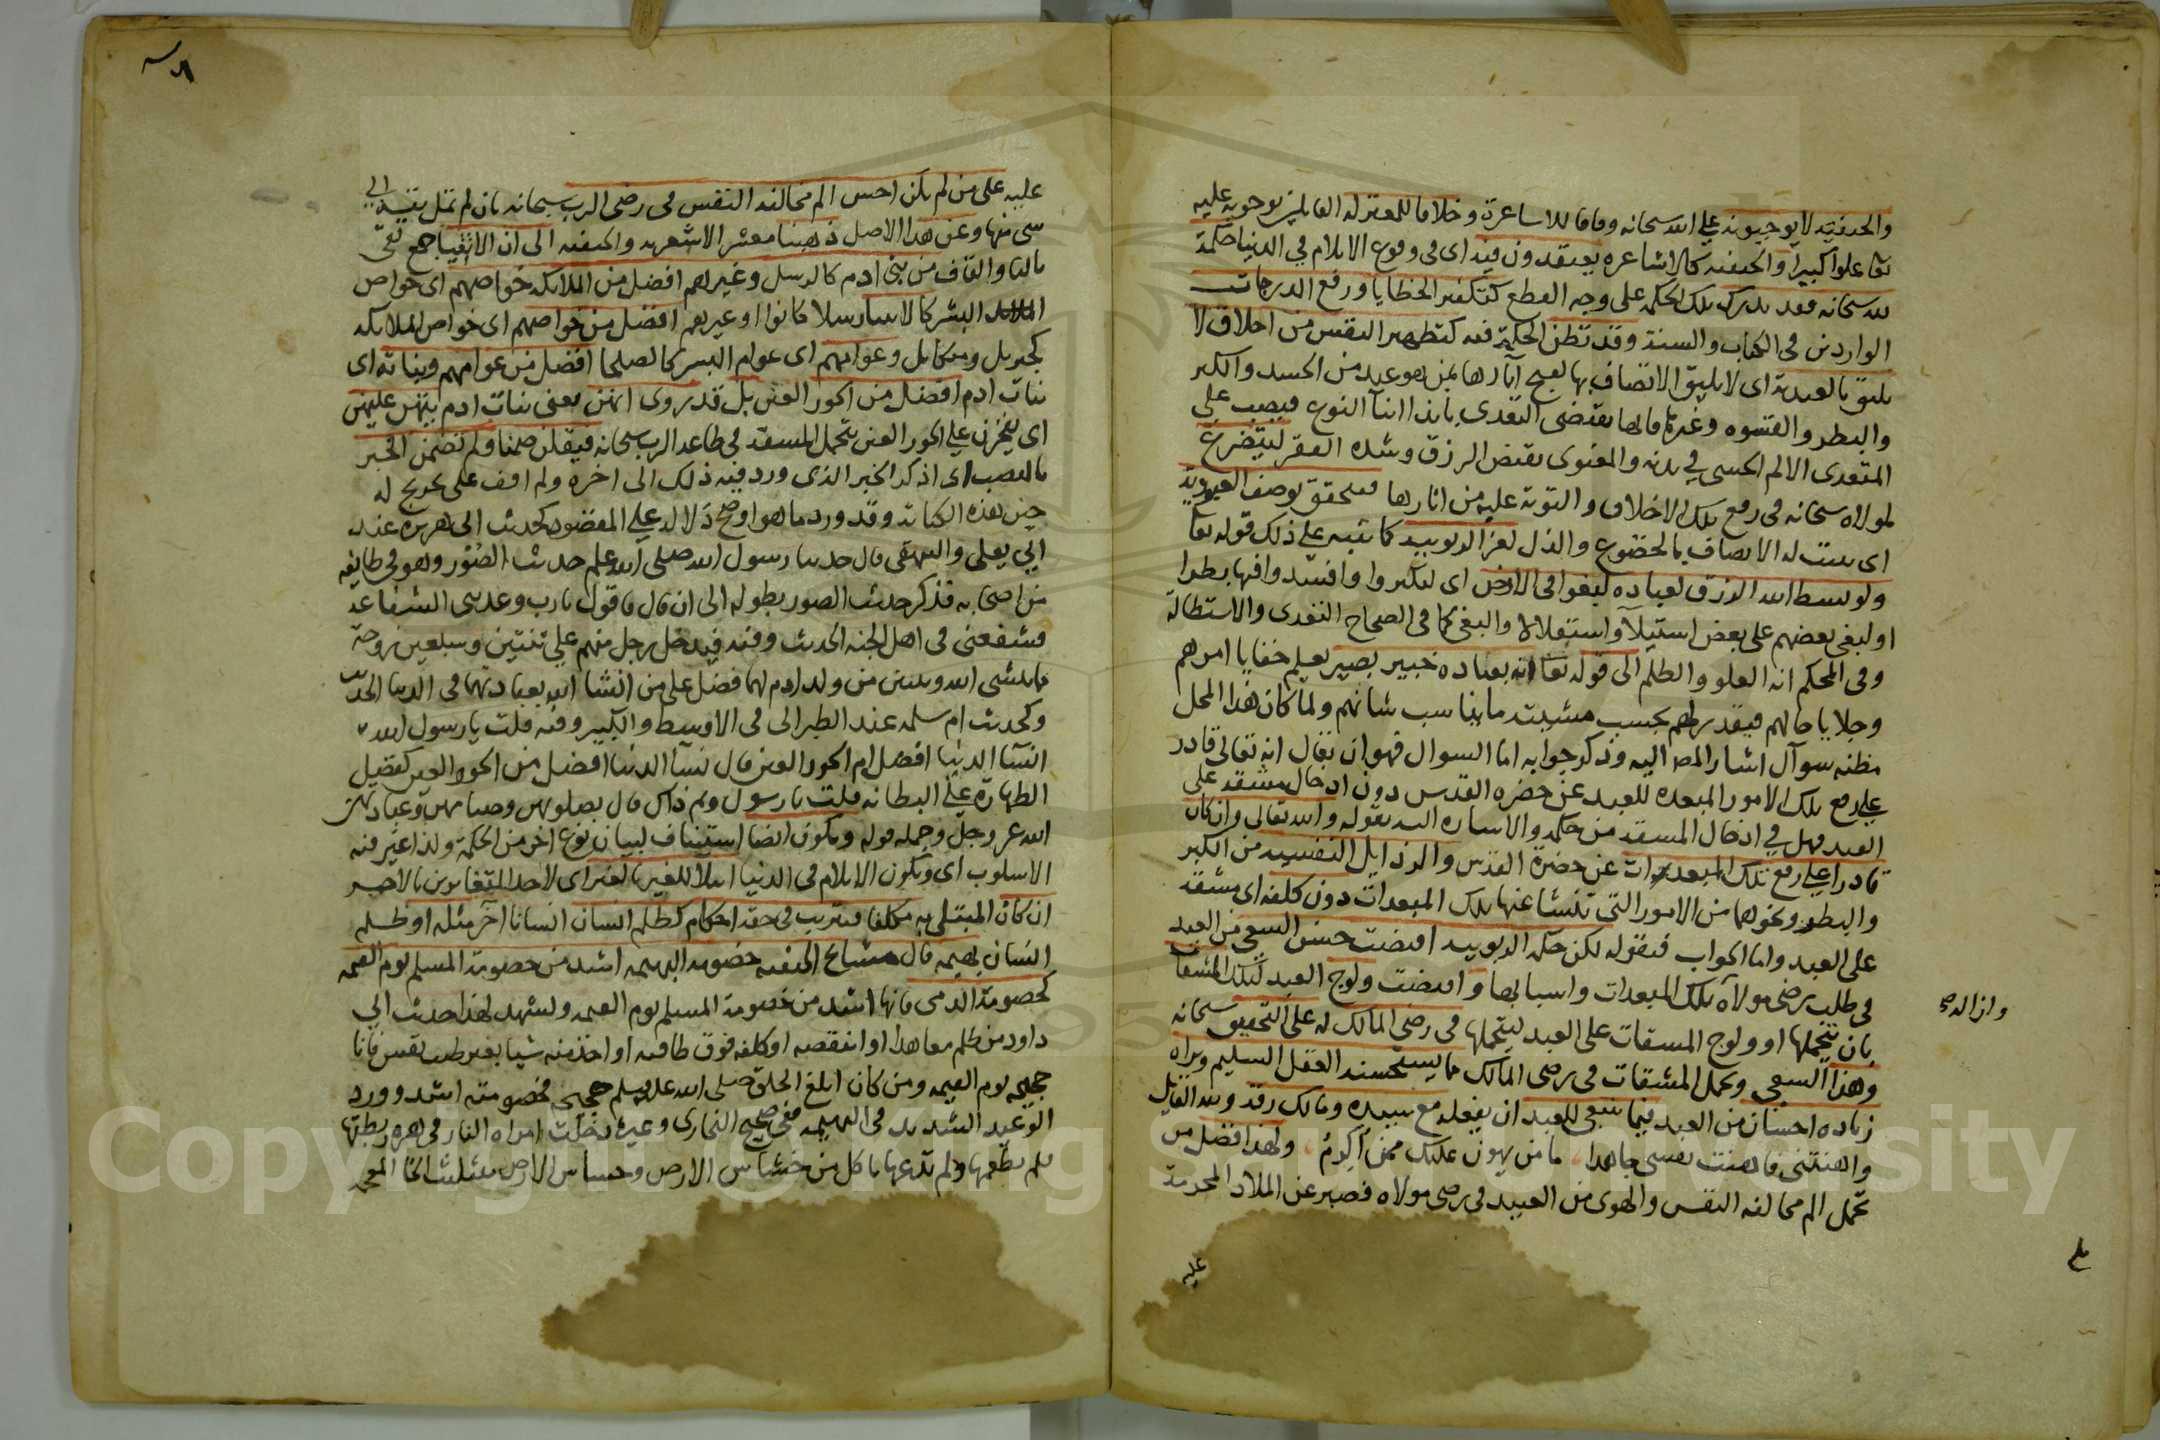 والحنفية لا يوجبونه على الله سبحانه وفاقا للاشاعرة وخلافا للمعتزلة القائلين بوجوبه عليه
تعا علوا كبيرا والحنفيه كالاشاعره يعتقدون فيه اى فى وقوع الايلام في الدنيا حكمة
لله سبحانه فقد تدرك تلك الحكمه على وجه القطع كتكفير الخطايا ورفع الدرجات
الواردين فى الكتاب والسنة وقد تظن الحكمة فيه كتطهير النفس من اخلاق لا
تليق بالعبدية اى لا يليق الاتصاف بها لقبح آثارها بمن هو عبد من الحسد والكبر
والبطر والقسوه وغيرها فانها تقتضى التعدى بايذا ابنا النوع فيصب على
المتعدى الالم الحسى في بدنه والمعنوى بقبض الرزق وشده الفقر ليتضرع
لمولاه سبحانه فى رفع تلك الاخلاق والتوبة عليه من اثارها فيتحقق بوصف العبودية
اى يثبت له الاتصاف بالخضوع والذل لعز الربوبيه كما نبه على ذلك قوله تعا
ولو بسط الله الرزق لعباده لبغوا فى الارض اى لتكبروا وافسدوا فيها بطرا
او لبغى بعضهم على بعض استيلاً واستعلا والبغى كما فى الصحاح التعدى والاستطالة
وفى المحكم انه العلو والظلم الى قوله تعا انه بعباده خبير بصير يعلم خفايا امرهم
وجلايا حالهم فيقدر لهم بحسب مشيته ما يناسب شانهم ولما كان هذا المحل
مظنه سوآل اشار المص اليه وذكر جوابه اما السوال فهو ان يقال انه تعالى قادر
على رفع تلك الامور المبعده للعبد عن حضره القدس دون ادخال مشقه على
العبد فهل في ادخال المشقه من حكمه والاشاره اليه بقوله والله تعالى وان كان
قادرا على رفع تلك المبعدات عن حضرة القدس والرذايل النفسيه من الكبر
والبطر ونحوهما من الامور التى تنشا عنها تلك المبعدات دون كلفه اى مشقه
على العبد واما الجواب فبقوله لكن حكمه الربوبيه اقتضت حسن السعى من العبد
فى طلب رضى مولاه بتلك المبعدات واسبابها واقتضت ولوج العبد لتلك المشقات
بان يتحملها او ولوج المشقات على العبد ليتحملها فى رضى المالك له على التحقيق سبحانه
وهذا السعى وتحمل المشقات فى رضى المالك مما يستحسنه العقل السليم ويراه
زياده احسان من العبد فيما ينبغى للعبد ان يفعله مع سيده ومالك رقه ولله القايل
واهنتنى فاهنت نفسى جاهدا ما من يهون عليك ممن اكرم ولهذا فضل من
تحمل الم مخالفه النفس والهوى من العبيد فى رضى مولاه فصبر عن الملاذ المحرمة
عليه
عليه على من لم يكن احس الم مخالفه النفس فى رضى الرب سبحانه بان لم تمل نفسه الى
شى منها وعن هذا الاصل ذهبنا معشر الاشعريه والحنفيه الى ان الاتقيا جمع تقى
بالتا والقاف من بنى ادم كالرسل وغيرهم افضل من الملايكه خواصهم اى خواص
البشر كالانبيا رسلا كانوا او غيرهم افضل من خواصهم اى خواص الملايكه
كجبريل وميكايل وعوامهم اى عوام البشر كالصلحا افضل من عوامهم وبناته اى
بنات ادم افضل من الحور العين بل قد روى انهن يعنى بنات ادم يتهن عليهن
اى يفخرن على الحور العين بتحمل المشقه في طاعه الرب سبحانه فيقلن صمنا ولم تصمن الخبر
بالنصب اى اذكر الخبر الذى ورد فيه ذلك الى اخره ولم اقف على تخريج له
حين هذه الكتابه وقد ورد ما هو اوضح دلاله على المقصود كحديث ابى هريره عند
ابي يعلى والبيهقى قال حدثنا رسول الله صلى الله علم حديث الصور وهو فى طايفه
من اصحابه فذكر حديث الصور بطوله الى ان قال فاقول يا رب وعدتنى الشفاعه
فشفعنى فى اهل الجنه الحديث وفيه فيدخل رجل منهم على ثنتين وسبعين زوجة
مما ينشى الله وثنتين من ولد ادم لهما فضل على من انشا الله بعبادتهما فى الدنيا الحديث
وكحديث ام سلمه عند الطبرانى فى الاوسط والكبير وفيه قلت يا رسول الله
انسآ الدنيا افضل ام الحور العين قال نسآ الدنيا افضل من الحور العين كفضل
الطهارة على البطانه قلت يا رسول وبم ذاك قال بصلوتهن وصيامهن وعبادتهن
الله عز وجل وجمله قوله ويكون ايضا استيناف لبيان نوع اخر من الحكمة ولذا غير فيه
الاسلوب اى ويكون الايلام فى الدنيا ابتلاً للغير بالغير اى لاحد المتغايرين بالاخر
ان كان المبتلى به مكلفا فترتب فى حقه احكام كظلم انسان انسانا اخر مثله او ظلم
انسان بهيمه قال مشايخ الحنفيه خصومه البهيمه اشد من خصومة المسلم يوم القيمه
كخصومة الذمى فانها اشد من خصومة المسلم يوم القيمه ويشهد لهذا حديث ابي
داود من ظلم معاهدا او انتقصه او كلفه فوق طاقته او اخذ منه شيا بغير طيب نفس فانا
حجيجه يوم القيمه ومن كان ابلغ الخلق صلى الله علم حجيجه فخصومته اشد وورد
الوعيد الشديد فى البهيمه ففى صحيح البخارى وغيره دخلت امراه النار فى هره ربطتها
فلم تطعمها ولم تدعها تاكل من خشاش الارض وخشاش الارض مثلث الخا المعجمه
Copyright © King Saud University